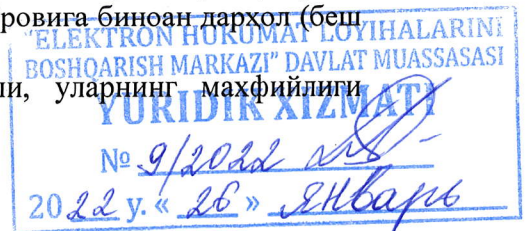 ровига биноан дарҳол (беш
"ELEKTRON HUKUMAT LOYIHALARINI
BOSHQARISH MARKAZI" DAVLAT MUASSASASI
ли, уларнинг махфийлиги
YURIDIK XIZMATI
№ 9/2022
2022 y. « 26 » январь